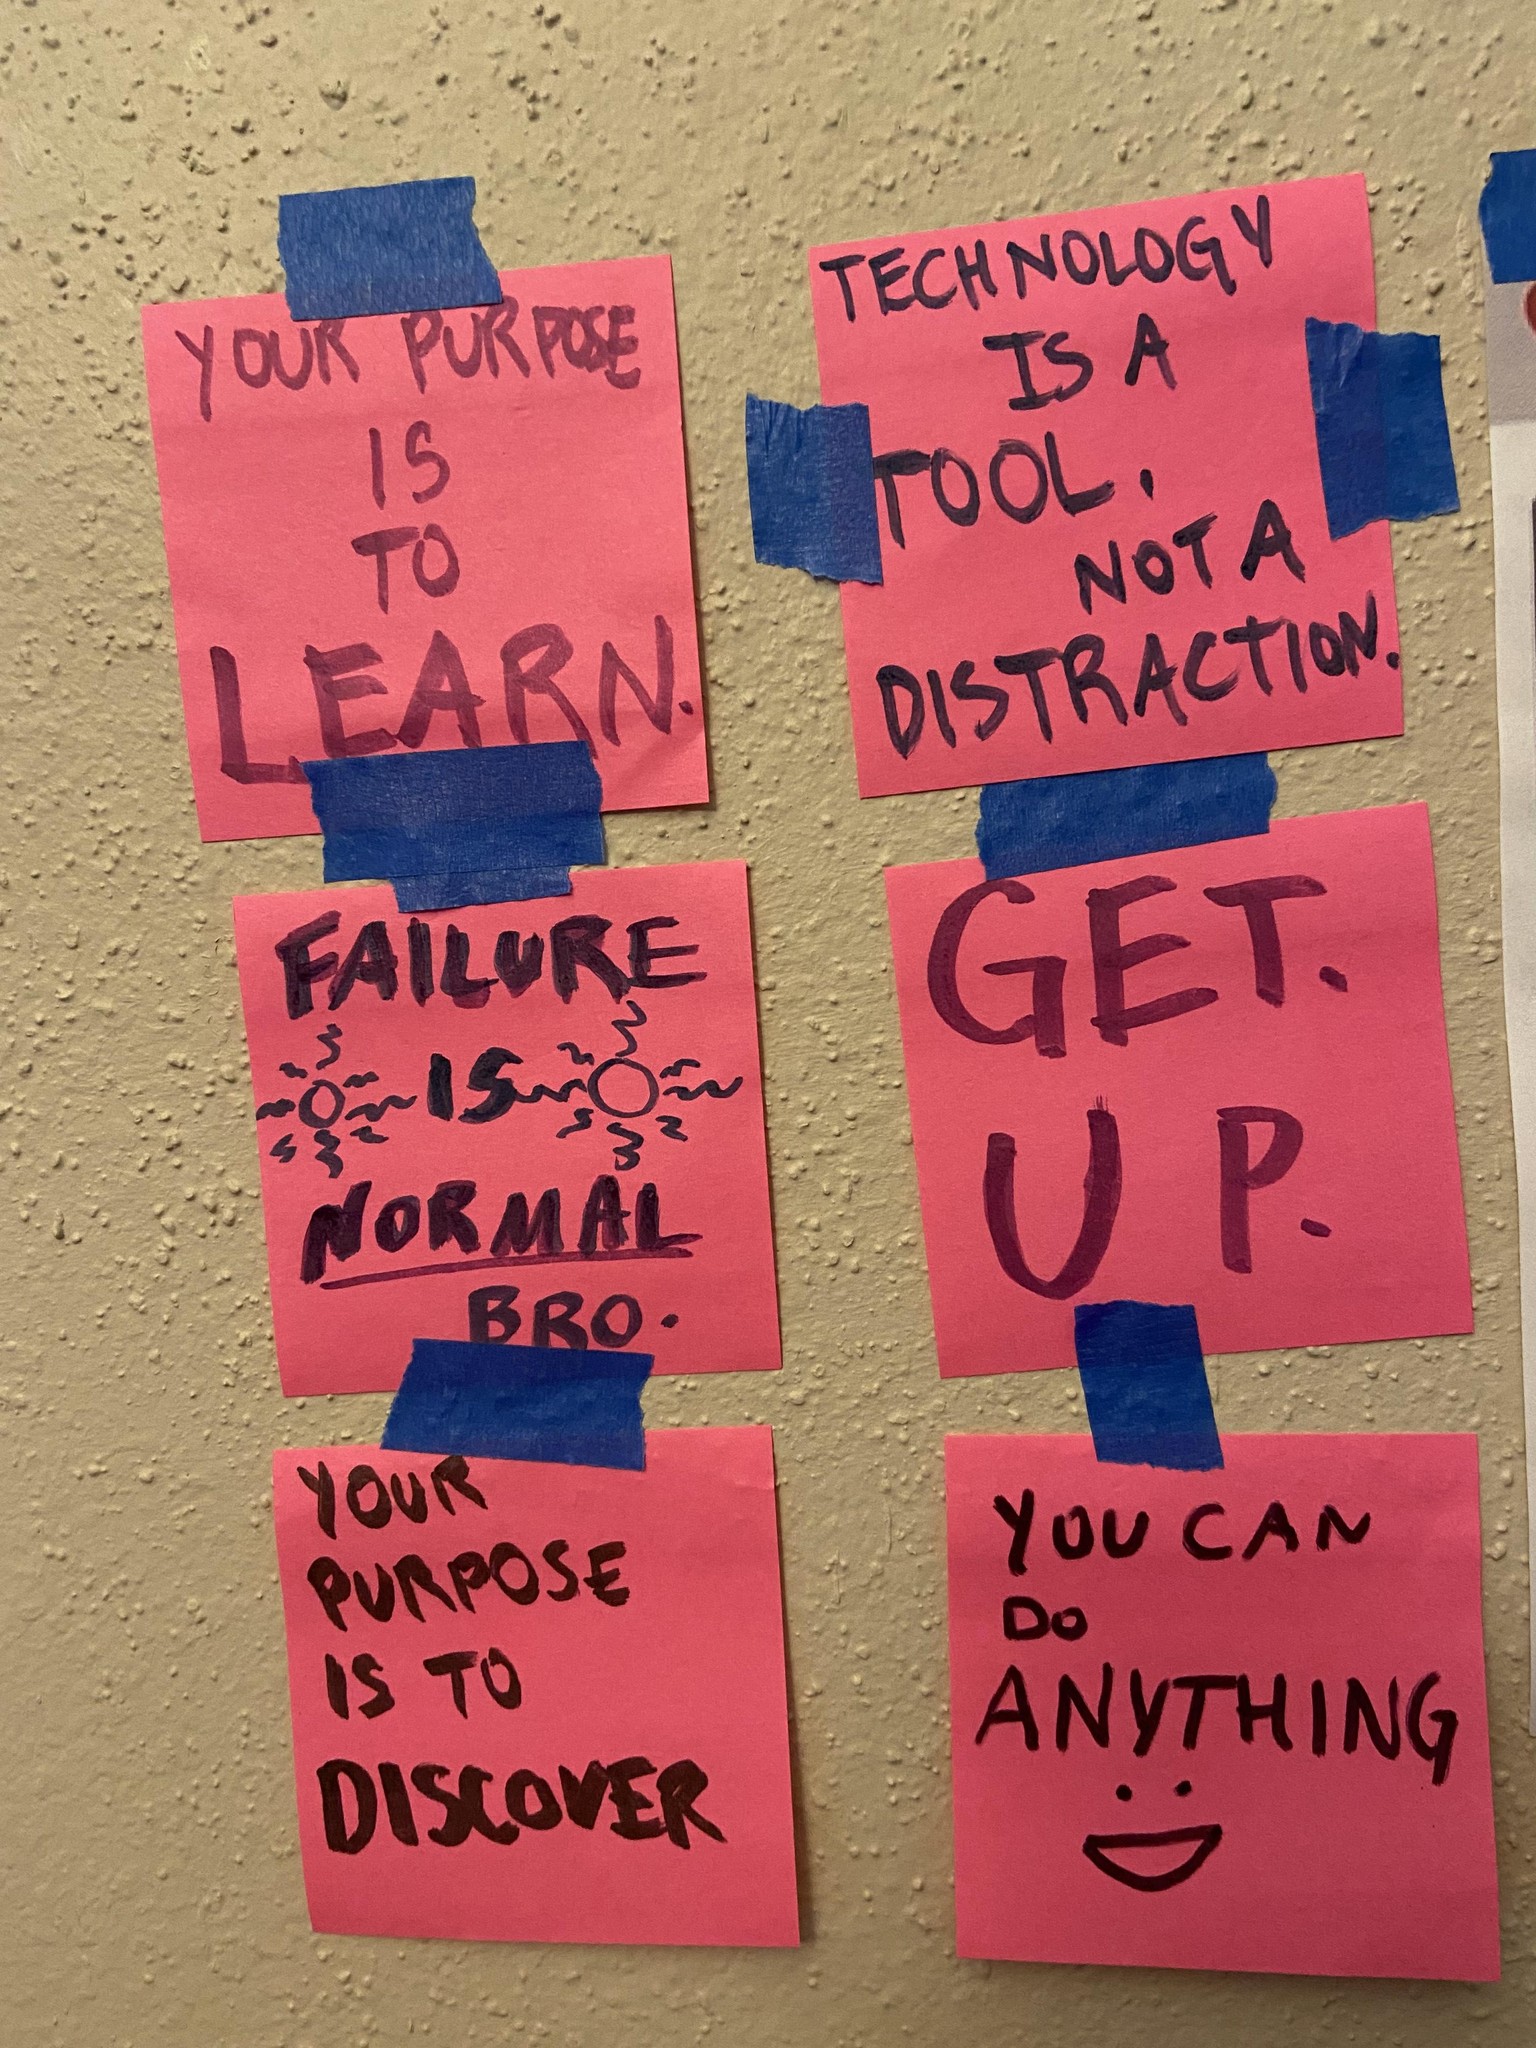 YOUR PURPOSE
IS
TO
LEARN.
TECHNOLOGY
IS A
TOOL.
NOT A
DISTRACTION.
FAILURE
IS
NORMAL
BRO.
GET.
UP.
YOUR
PURPOSE
IS TO
DISCOVER
YOU CAN
DO
ANYTHING